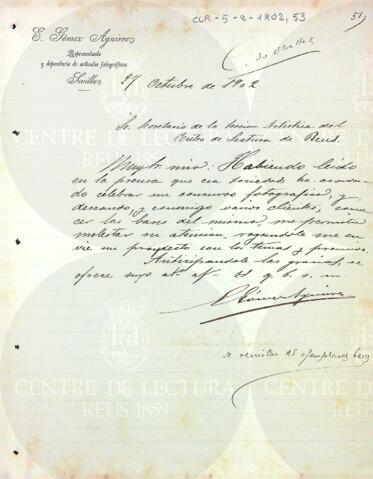 CLR-5-8-1902, 53
51
E. Gómez Aguirre
Representante
y depositario de artículos fotográficos
Sevilla
27 Octubre de 1902
Sr. Secretario de la Sección Artística del
Centro de Lectura de Reus.
Muy Sr. mio: Habiendo leido
en la prensa que esa Sociedad ha acorda-
do celebrar un concurso fotografico, y
deseando y conmigo varios clientes, cono-
cer las bases del mismo, me permito
molestar su atencion, rogandole me en-
vie un prospecto con los temas y premios.
Anticipandole las gracias, se
ofrece suyo at. af. q. b. s. m
E. Gomez Aguirre
se remiten 25 ejemplares
CENTRE DE LECTURA
REUS 1859
CENTRE DE LECTURA
REUS 1859